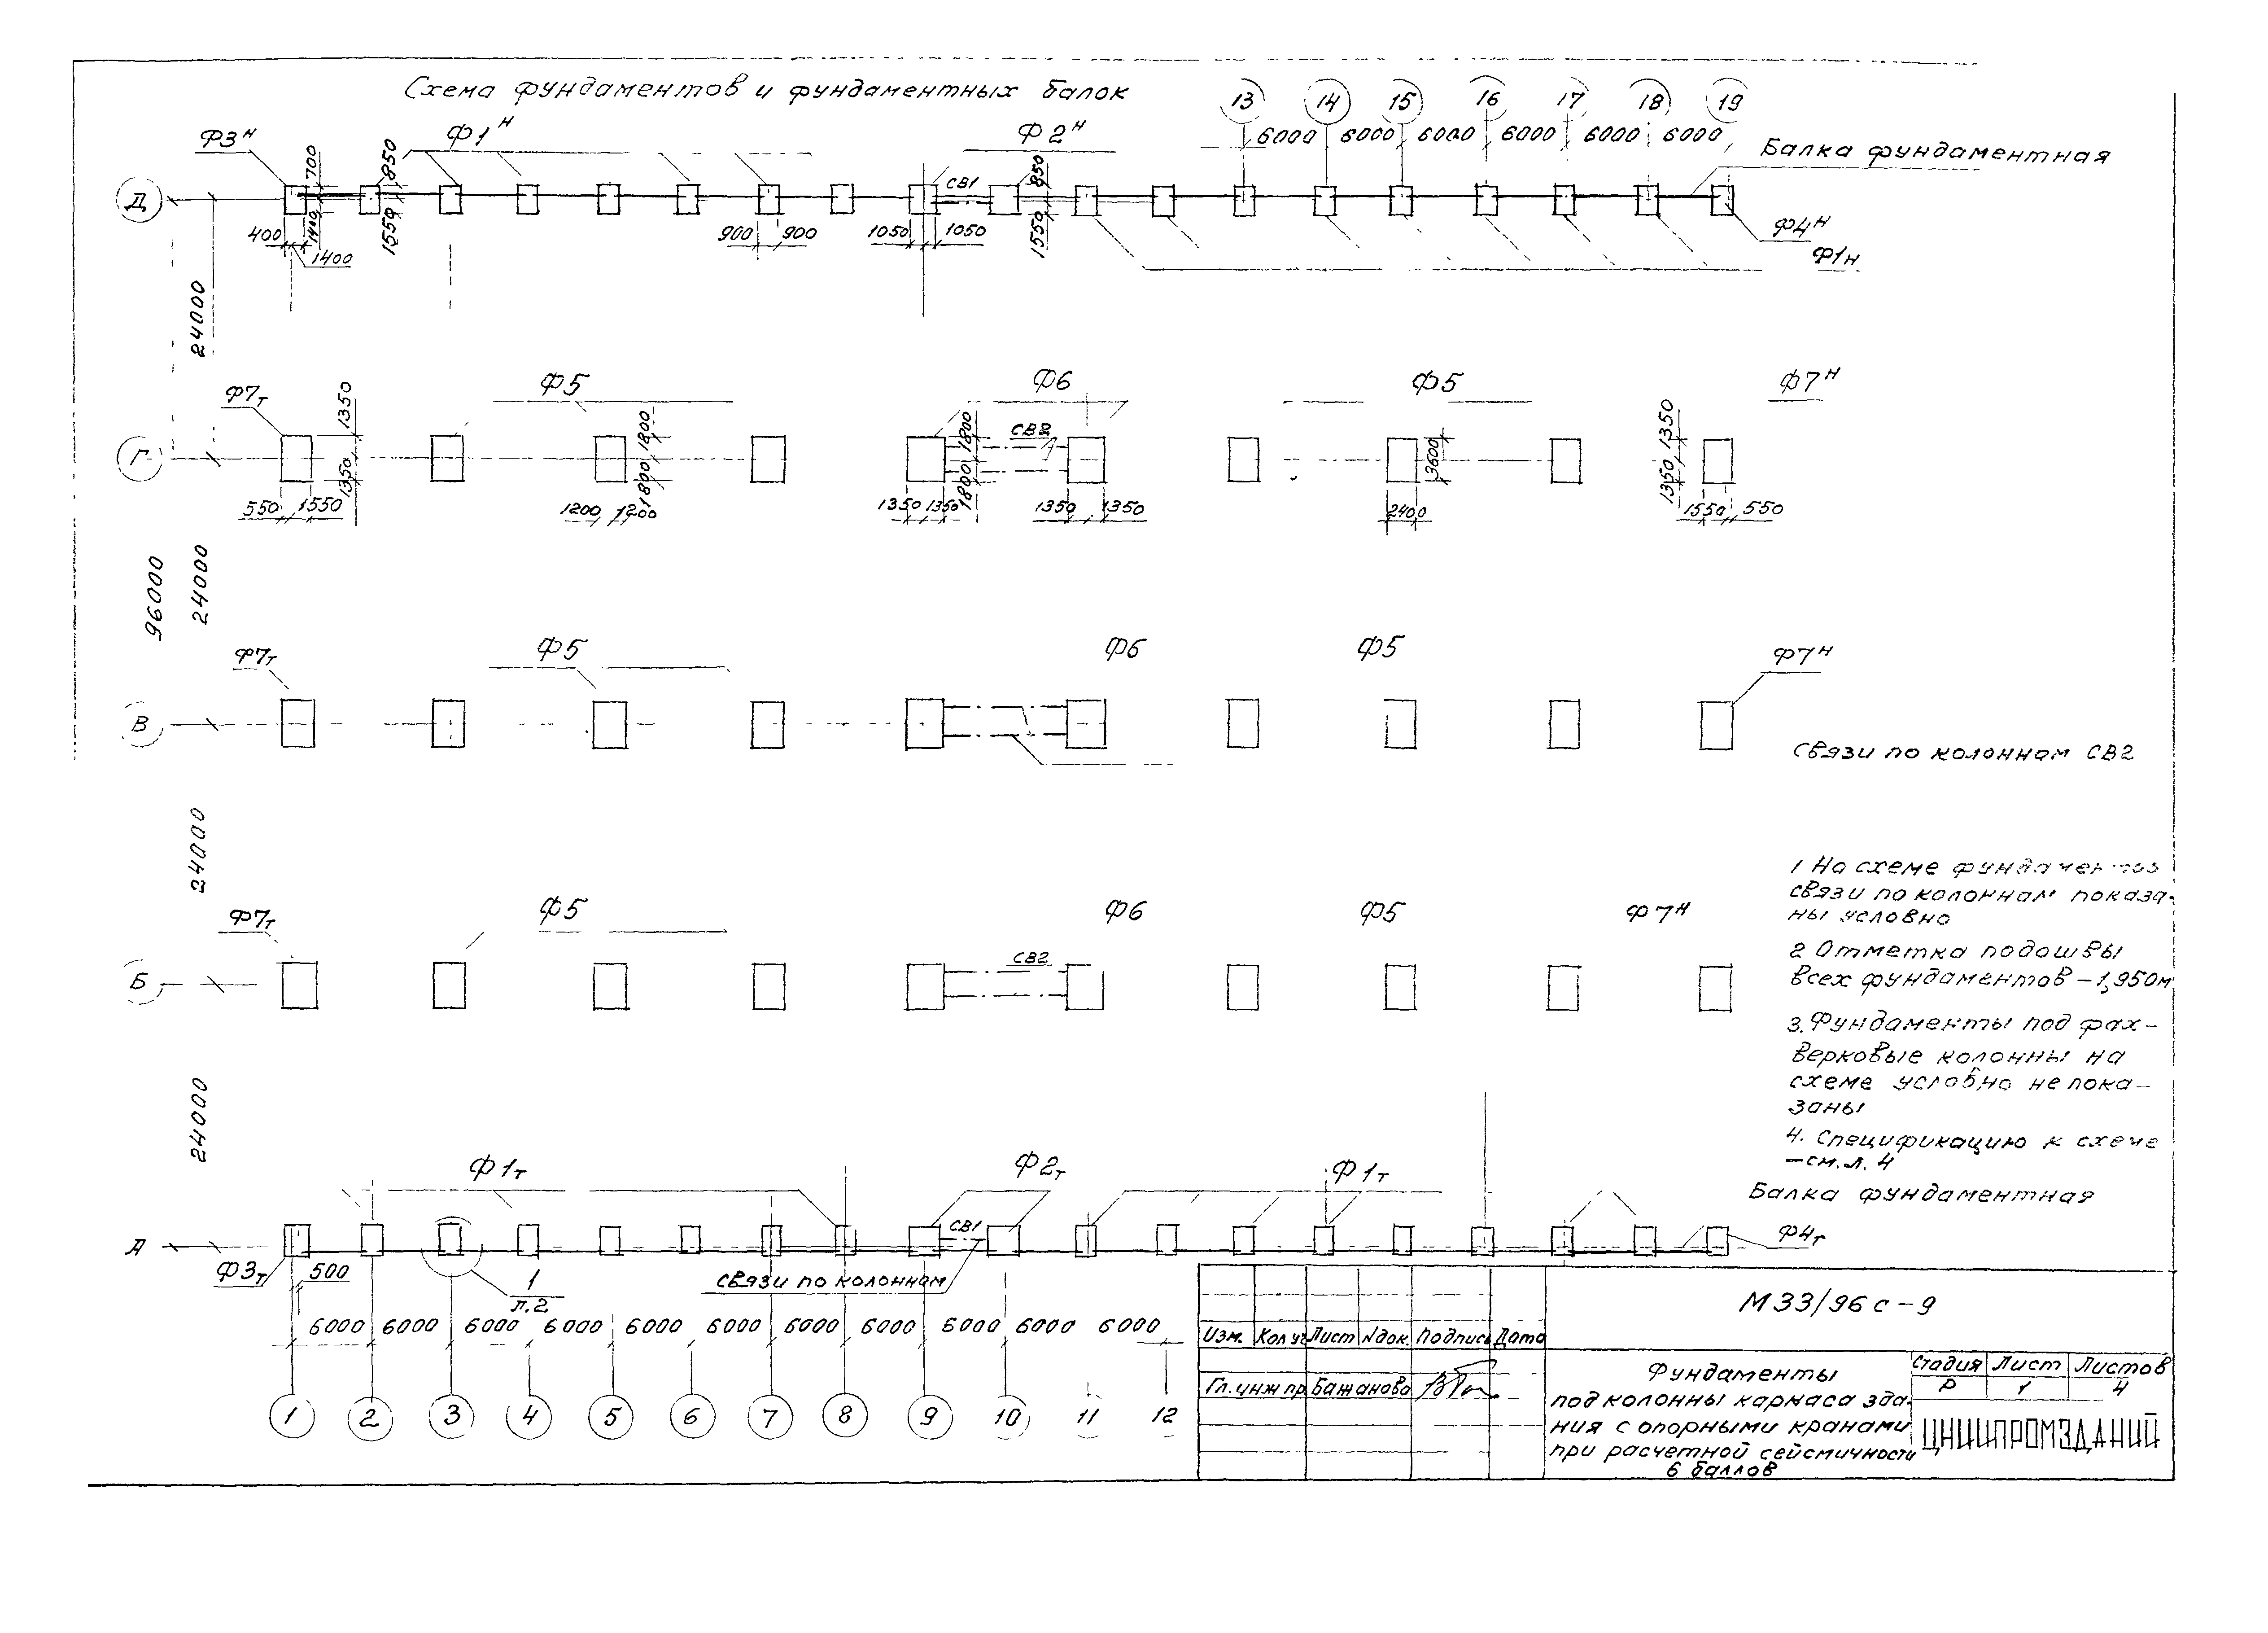 Схема фундаментов и фундаментных балок
13 14 15 16 17 18 19
6000 6000 6000 6000 6000 6000
Ф3н Ф1н Ф2н
Балка фундаментная
700 850 СВ1 850
Д
400 1400 1400 1550 900 900 1050 1050 1550
Ф4н
Ф1н
24000
Ф7т Ф5 Ф6 Ф5 Ф7н
1350 1800 1800 СВ2 3600 1350
Г
1350 1800 1800 1350
550 1550 1200 1200 1350 1350 1350 1350 2400 1550 550
96000
24000
Ф7т Ф5 Ф6 Ф5 Ф7н
В
Связи по колоннам СВ2
24000
1 На схеме фундаментов
связи по колоннам показа-
ны условно
Ф7т Ф5 Ф6 Ф5 Ф7н
2 Отметка подошвы
всех фундаментов -1,950м
Б
СВ2
3. Фундаменты под фах-
верковые колонны на
схеме условно не пока-
заны
4. Спецификацию к схеме
-см. л. 4
24000
Ф1т Ф2т Ф1т
Балка фундаментная
А
СВ1
Ф4т
Ф3т 500
1
л.2
связи по колоннам
6000 6000 6000 6000 6000 6000 6000 6000 6000 6000 6000
1 2 3 4 5 6 7 8 9 10 11 12
М33/96с-9
Изм. Кол уч Лист Nдок. Подпись Дата
Гл. инж пр. Бажанова
Фундаменты
под колонны каркаса зда-
ния с опорными кранами
при расчетной сейсмичности
6 баллов
Стадия Лист Листов
Р 1 4
ЦНИИПРОМЗДАНИЙ